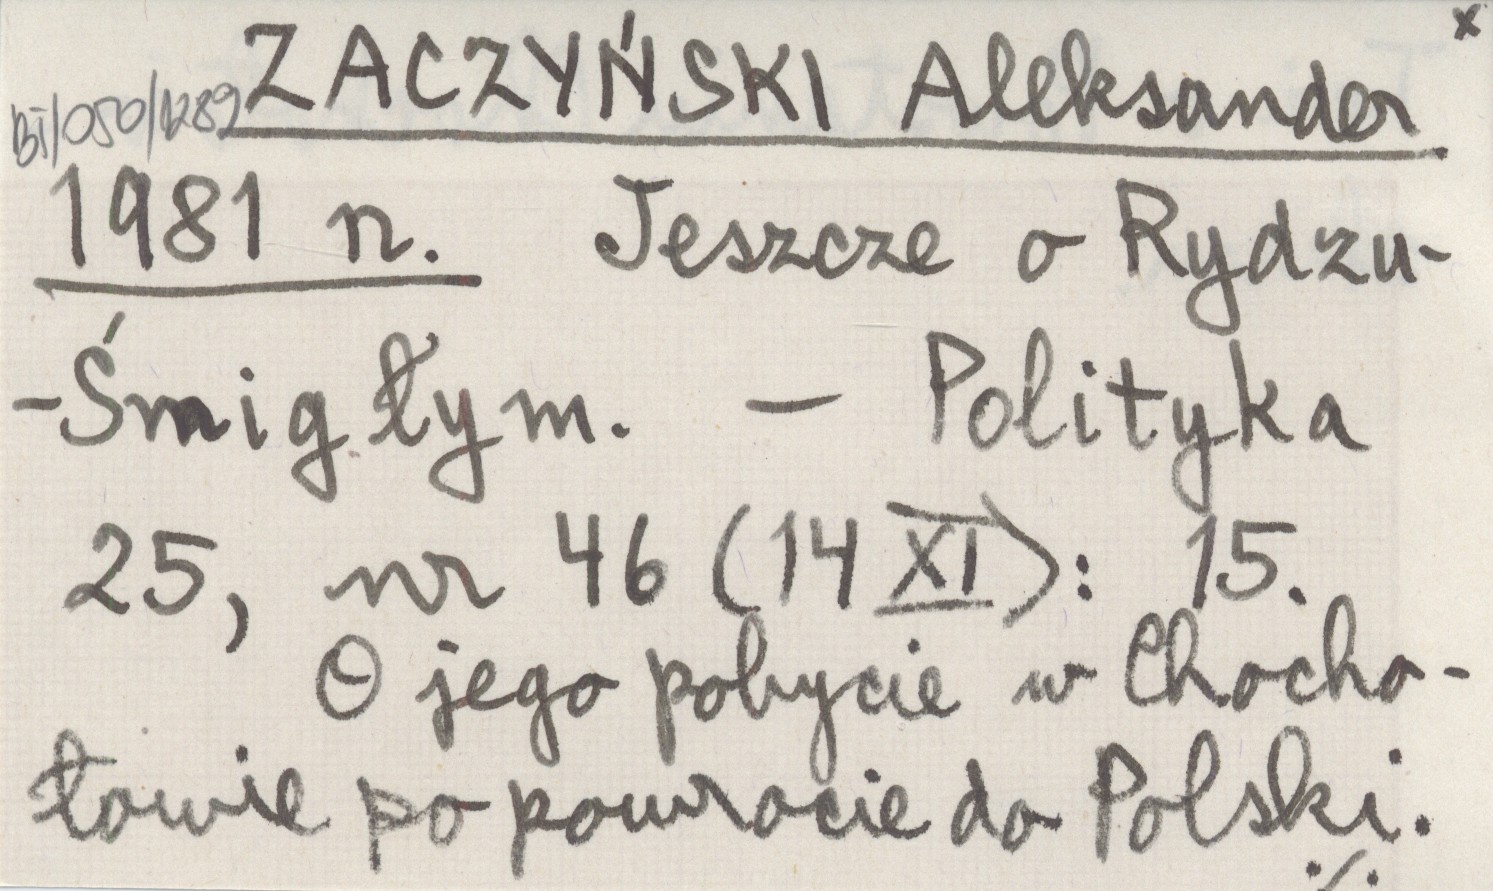 x
ZACZYŃSKI Aleksander
BT/050/1289
1981 r. Jeszcze o Rydzu-
-Śmigłym. — Polityka
25, nr 46 (14 XI): 15.
O jego pobycie w Chocho-
łowie po powrocie do Polski.
./.